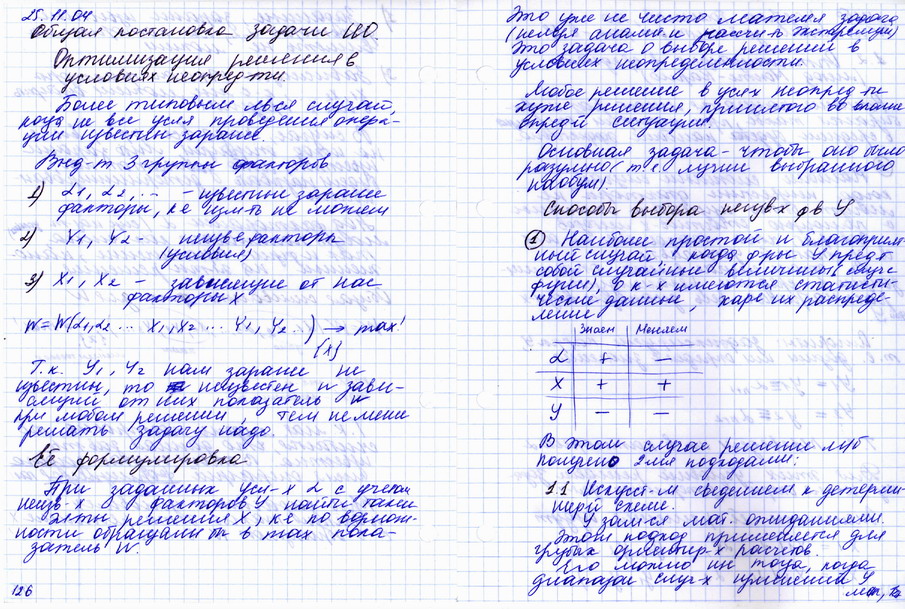 25.11.04
Общая постановка задачи ИО.
Оптимизация решения в
условиях неопред-ти.
Более типовым явл-ся случай,
когда не все усл-я проведения опера-
ции известны заранее.
Выд-т 3 группы факторов
1) α1, α2, ... - известные заранее
факторы, к-е изм-ть не можем
2) Y1, Y2 - неизв-е факторы
(условия)
3) X1, X2 - зависящие от нас
факторы X
W = W(α1, α2 ... X1, X2 ... Y1, Y2 ...) → max!
{X}
Т.к. Y1, Y2 нам заранее не
известны, то неизвестен и зави-
сящий от них показатель W
при любом решении, тем не мене
решать задачу надо.
Её формулировка
При заданных усл-х α с учетом
неизв-х факторов Y найти такие
эл-ты решения X, к-е по возмож-
ности обращали в max пока-
затель W.
126
Это уже не чисто математ задача
(нельзя анализ и рассчит экстремум)
Это задача о выборе решений в
условиях неопределенности.
Любое решение в усл-ях неопред-ти
хуже решения, принятого во вполне
опред-й ситуации.
Основная задача - чтобы оно было
разумно (т.е лучше выбранного
наобум).
Способы выбора неизв-х ф-в Y
1 Наиболее простой и благоприят-
ный случай, когда ф-ры Y предст
собой случайные величины (случ
ф-ции), о к-х имеются статисти-
ческие данные, хар-е их распреде-
ление
Знаем Меняем
α + —
X + +
Y — —
В этом случае решение м/б
получено 2-мя подходами:
1.1 Искусст-м сведением к детерми-
нир-й схеме.
Y зам-ся мат. ожиданиями.
Этот подход применяется для
грубых ориентир-х расчетов.
Его можно исп тогда, когда
диапазон случ-х изменений Y